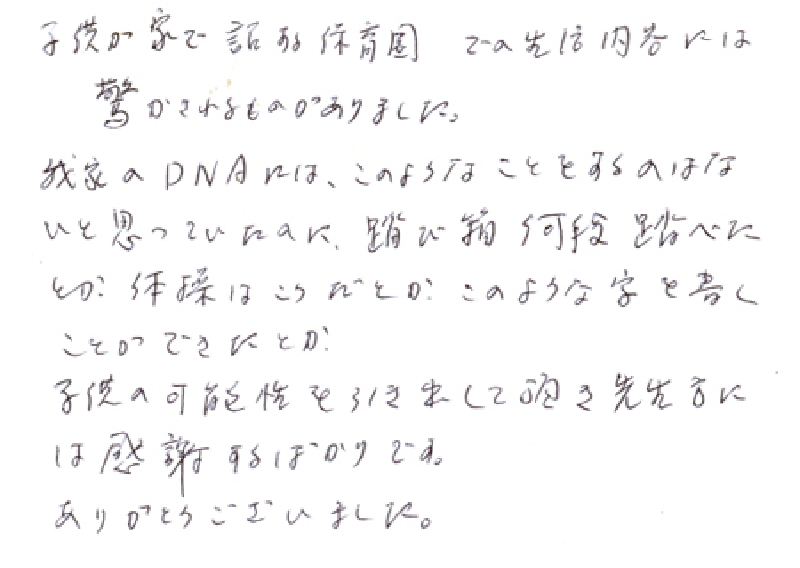 子供が家で話する保育園 での生活内容には
驚かされるものがありました。
我家のDNAには、このようなことをするのはな
いと思っていたのに、踏び箱 何段 踏べた
とか、体操はこうだとか、このような字を書く
ことができたとか、
子供の可能性を引き出して頂き先生方に
は感謝するばかりです。
ありがとうございました。